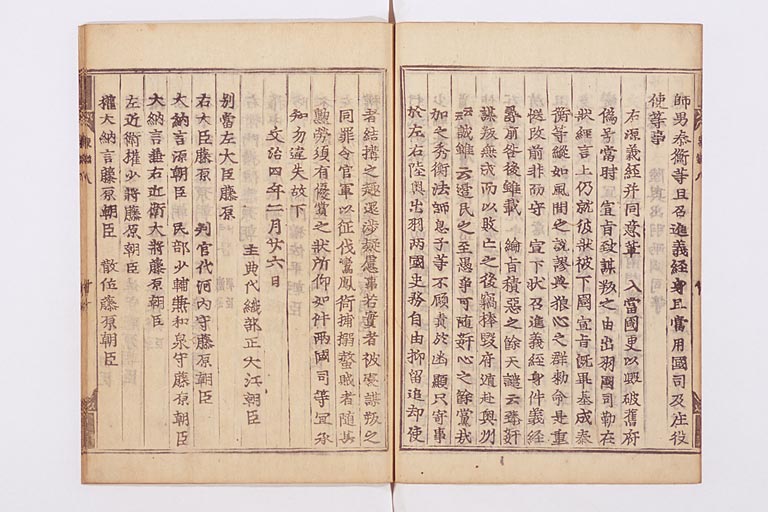 師男泰衡等且召進義經身且當用國司及庄役
使等事
右源義經并同意輩 入當國更以毀破舊府
偽号當時 宣旨致謀叛之由出羽國司勒在
狀經言上仍就彼狀被下 宣旨既畢基成泰
衡等縱如風聞之說謬與狼心之群勅命是重
從政前非而守 宣下狀召進義經身件義經
爵前咎後雖載 綸旨積惡之餘天譴云
謀叛無成而以敗亡之後竊捧毀府遠赴奥州
云誠雖云邊民之至愚爭可随奸心之餘黨哉
少加之秀衡法師息子等不顧責於幽顯只寄事
於左右陸奥出羽兩國吏務自由抑留追却使
者結搆之趣還涉疑慮事若實者彼與謀叛之
同罪令官軍以征伐鸞鳳衛捕撠蝥賊者随其
勲勞須有優賞之狀所仰如件兩國司等宜承
知勿違失故下
文治四年二月廿六日
主典代織部正大江朝臣
別當左大臣藤原
右大臣藤原朝臣 判官代河内守藤原朝臣
大納言源朝臣 民部少輔兼和泉守藤原朝臣
大納言兼右近衛大將藤原朝臣
左近衛權少將藤原朝臣
權大納言藤原朝臣 散位藤原朝臣